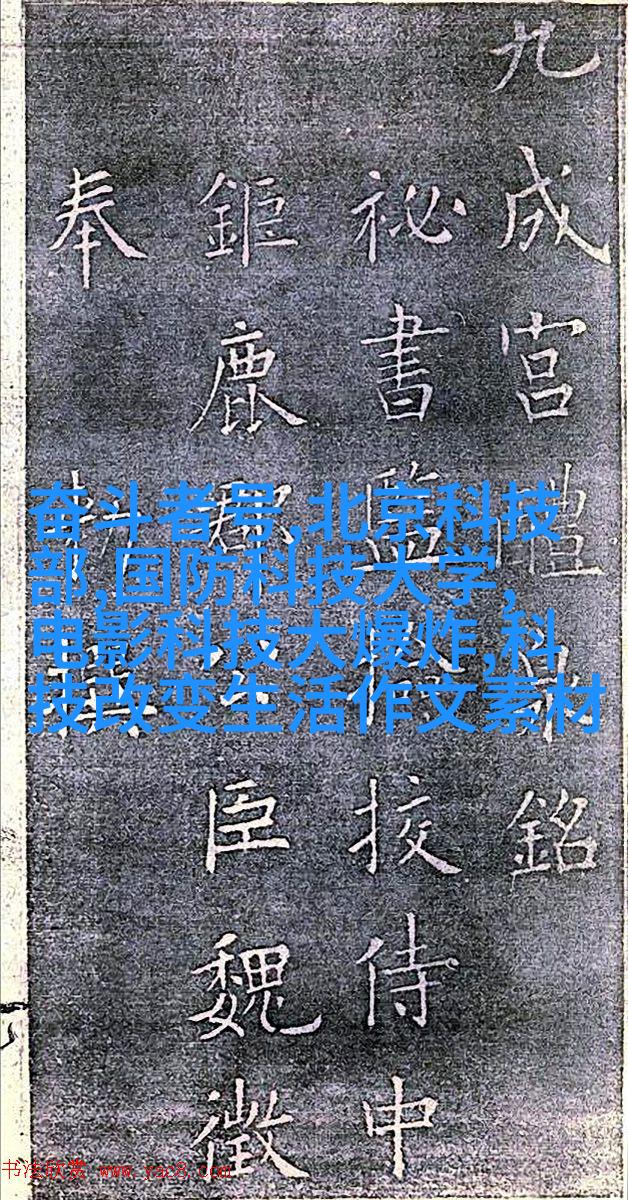 九成宮醴銘
祕書監挍侍中
鉅鹿郡臣魏徵
奉
奋斗者号,北京科技
部,国防科技大学,
电影科技大爆炸,科
技改变生活作文素材
书法欣赏 www.yac8.com